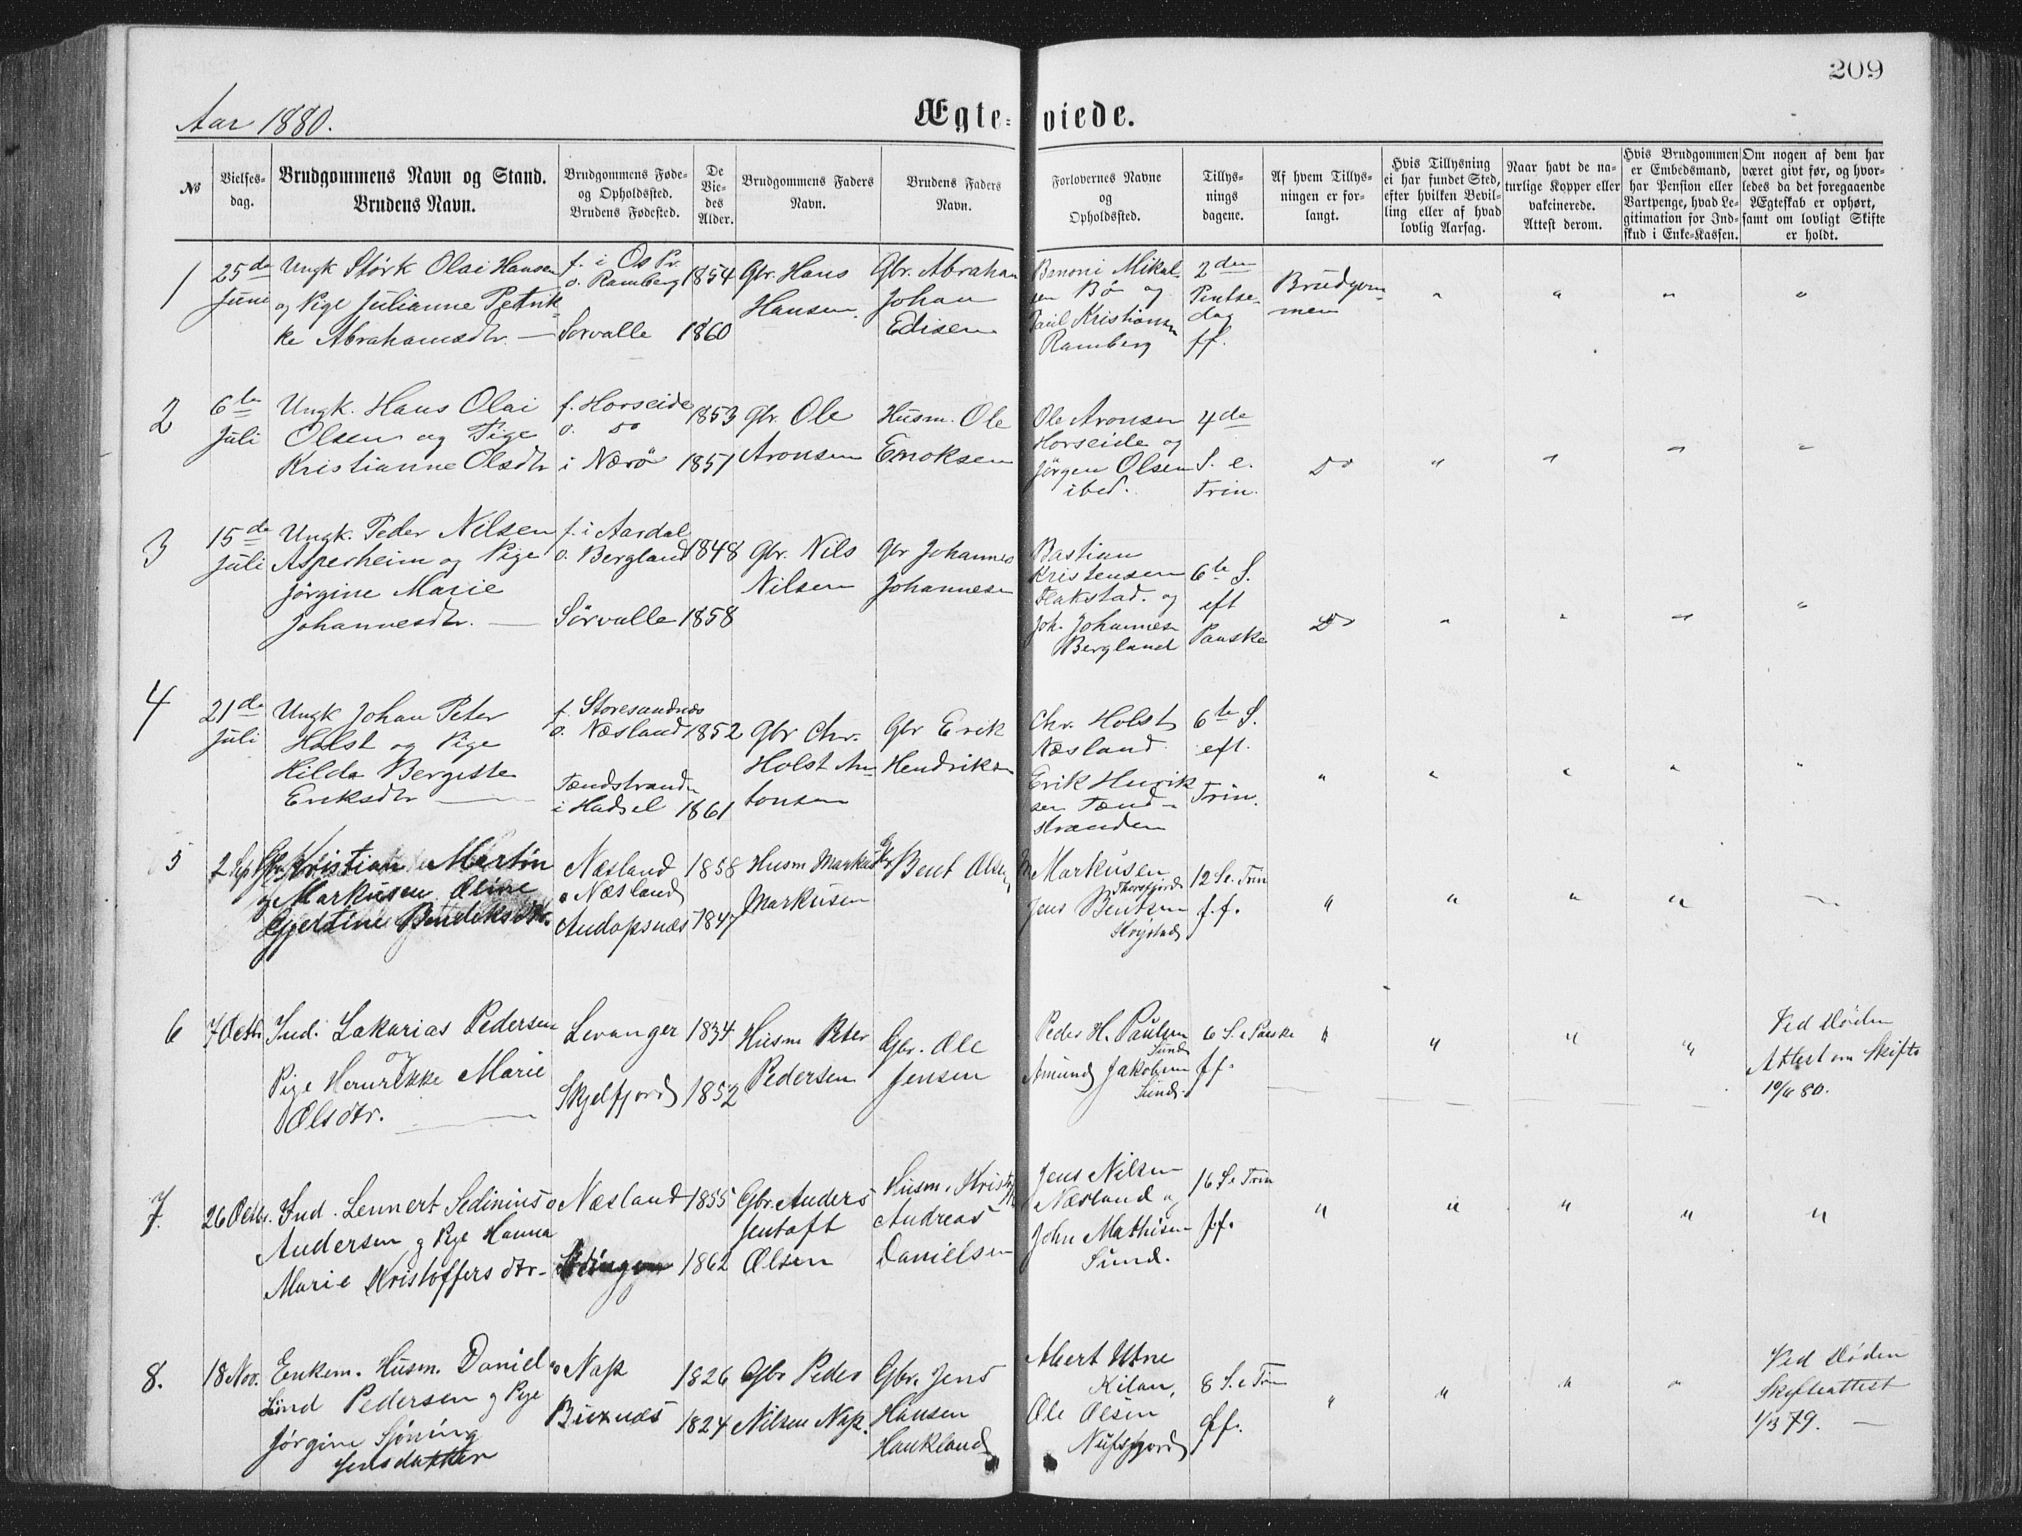 209
Aar 1880.
Ægteviede.
No
Vielses-
dag.
Brudgommens Navn og Stand.
Brudens Navn.
Brudgommens Føde-
og Opholdssted.
Brudens Fødested.
De
Vie-
des
Alder.
Brudgommens Faders
Navn.
Brudens Faders
Navn.
Forlovernes Navne
og
Opholdssted.
Tillys-
nings
dagene.
Af hvem Tillys-
ningen er for-
langt.
Hvis Tillysning
ei har fundet Sted,
efter hvilken Bevil-
ling eller af hvad
lovlig Aarsag.
Naar havt de na-
turlige Kopper eller
vakcinerede.
Attest derom.
Hvis Brudgommen
er Embedsmand,
har Pension eller
Vartpenge, hvad Le-
gitimation for Ind-
skud i Enke-Kassen.
Om nogen af dem har
været givt før, og hvor-
ledes da det foregaaende
Ægteskab er ophørt,
samt om lovligt Skifte
er holdt.
1
25de
Juni
Ungk Størk Olai Hansen
og Pige Julianne Petrik-
ke Abrahamsdtr. —
f. i Os Pr.
o. Ramberg
Sorvalle
1854
1860
Gbr. Hans
Hansen.
Gbr. Abraham
Johan
Edisen
Benoni Mikal-
sen Bø og
Paul Kristiansen
Ramberg
2den
Pintse-
dag
ff.
Brudgom-
men
" " " "
2
6te
Juli
Ungk. Hans Olai
Olsen og Pige
Kristianne Olsdtr
f. Horseide
o. do
i Nærø
1853
1851
Gbr. Ole
Aronsen
Husm. Ole
Enoksen
Ole Aronsen
Horseide og
Jørgen Olsen
ibid.
4de
S. e.
Trin.
Do " " " "
3
15de
Juli
Ungk. Peder Nilsen
Asperheim og Pige
Jørgine Marie
Johannesdtr. —
f. i Aardal
o. Bergland
Sørvalle
1848
1858
Gbr. Nils
Nilsen
Gbr Johannes
Johannesen
Bastian
Kristensen
Flakstad. og
Joh. Johannesen
Bergland
6te S.
eft
Paaske
Do " " " "
4
21de
Juli
Ungk Johan Peter
Holst og Pige
Hilda Bergitte
Eriksdtr —
f. Storesandnes
o. Næsland
Tendstranden
i Hadsel
1852
1861
Gbr Chr.
Holst An-
tonsen
Gbr Erik
Hendriksen
Chr. Holst
Næsland.
Erik Henrik
sen Tend-
stranden
6te S.
eft.
Trin.
" " " " "
5
2 Sep
Kristian Martin
og Markusen Oline
Gjertine Bendiksdtr.
Næsland
o Næsland
Andopsnæs
1858
1847
Husm Markus
Markusen
Gbr Bent Olsen
Markusen
Jens Bentsen
12 S e. Trin
f.f.
" " " " —
6
7 Octbr.
Ind. Zakarias Pedersen
og
Pige Henrikke Marie
Olsdtr. —
Levanger
Skjelfjord
1834
1852
Husm Peter
Pedersen
Gbr. Ole
Jensen
Peder H. Paulsen
Sund
Amund Jakobsen
Sund.
6 S. e Paaske
ff.
" " " "
Ved Døden
Attest om Skifte
10/6 80.
7.
26 Octbr.
Ind. Lennert Sedinius
Andersen g Pige Hanna
Marie Kristoffersdtr-
o Næsland
1855
1862
Gbr. Anders
Jentoft
Olsen
Husm. Kristoffer
Andreas
Danielsen
Jens Nilsen
Næsland g
John Mathisen
Sund.
16 S e Trin
f.f.
" " " " "
8.
18 Nov.
Enkem. Husm. Daniel
Lind Pedersen g Pige
Jørgine Sjøning
Jensdatter
o Nap
Buxnæs
1826
1824
Gbr Peder
Nilsen Nap.
Gbr. Jens
Hansen
Haukland
Albert Utne
Kilan,
Ole Olsen
Nufsfjord
8 S. e Trin
ff.
" " " "
Ved Døden
Skifteattest
1/3 79. —